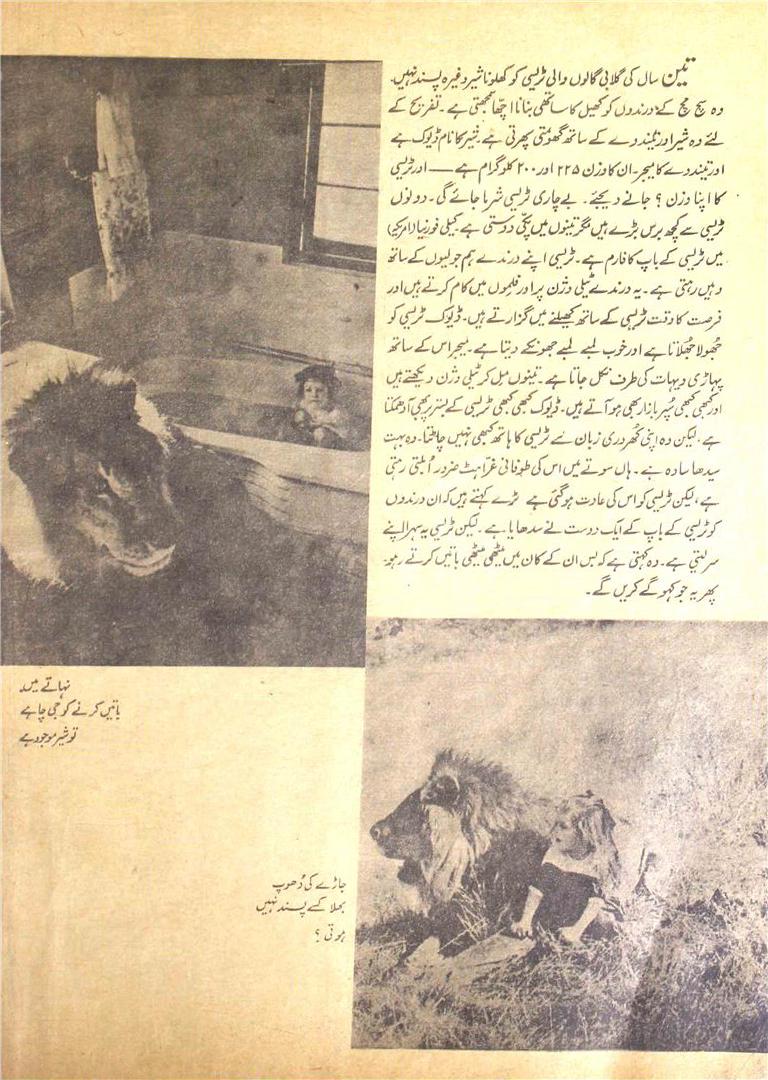 تین سال کی گلابی گالوں والی ٹریسی کو کھلونا شیر وغیرہ پسند نہیں۔
وہ سچ مچ کے درندوں کو کھیل کا ساتھی بنانا اچھا سمجھتی ہے۔ تفریح کے
لئے وہ شیر اور تیندوے کے ساتھ گھومتی پھرتی ہے۔ شیر کا نام ڈیوک ہے
اور تیندوے کا میجر۔ ان کا وزن ۲۲۵ اور ۲۰۰ کلوگرام ہے —— اور ٹریسی
کا اپنا وزن ؟ جانے دیجئے۔ بے چاری ٹریسی شرما جائے گی۔ دونوں
ٹریسی سے کچھ برس بڑے ہیں مگر تینوں میں پکّی دوستی ہے۔ کیلی فورنیا (امریکہ)
میں ٹریسی کے باپ کا فارم ہے۔ ٹریسی اپنے درندے ہم جولیوں کے ساتھ
وہیں رہتی ہے۔ یہ درندے ٹیلی وژن پر اور فلموں میں کام کرتے ہیں اور
فرصت کا وقت ٹریسی کے ساتھ کھیلنے میں گزارتے ہیں۔ ڈیوک ٹریسی کو
جھولا جھلاتا ہے اور خوب لمبے لمبے جھونکے دیتا ہے۔ میجر اس کے ساتھ
پہاڑی دیہات کی طرف نکل جاتا ہے۔ تینوں مل کر ٹیلی وژن دیکھتے ہیں
اور کبھی کبھی سُپر بازار بھی ہو آتے ہیں۔ ڈیوک کبھی کبھی ٹریسی کے بستر پر بھی آ دھمکتا
ہے، لیکن وہ اپنی کھُردری زبان سے ٹریسی کا ہاتھ کبھی نہیں چاٹتا۔ وہ بہت
سیدھا سادہ ہے۔ ہاں سوتے میں اس کی طوفانی غرّاہٹ ضرور اُبلتی رہتی
ہے، لیکن ٹریسی کو اس کی عادت ہو گئی ہے۔ بڑے کہتے ہیں کہ ان درندوں
کو ٹریسی کے باپ کے ایک دوست نے سدھایا ہے۔ لیکن ٹریسی یہ سہرا اپنے
سر لیتی ہے۔ وہ کہتی ہے کہ بس ان کے کان میں میٹھی میٹھی باتیں کرتے رہو۔
پھر یہ جو کہو گے کریں گے۔
نہاتے میں
باتیں کرنے کو جی چاہے
تو شیر موجود ہے
جاڑے کی دُھوپ
بھلا کسے پسند نہیں
ہوتی ؟